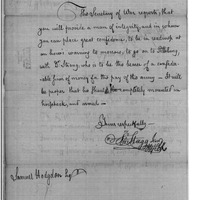 The Secretary of War requests, that
you will provide a man of integrity, and in whom
you can place great confidence, to be in readiness at
an hours warning to morrow, to go on to Pittsburg,
with Mr. , who is to be the bearer of a consider-
able sum of money for the pay of the army — It will
be proper that he should be completely mounted on
horseback, and armed —
Yours respectfully —
Jno Stagg Junr
Samuel Hodgdon Esqr